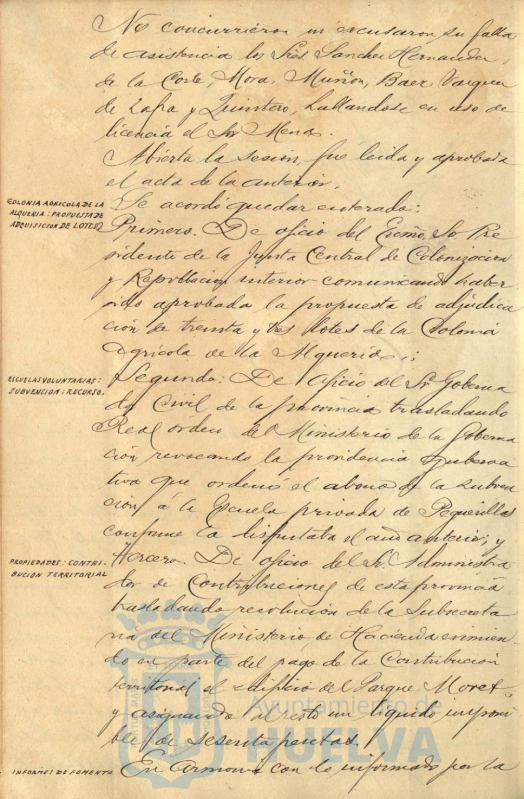 No concurrieron ni escusaron su falta
de asistencia los Sres Sanchez Hernandez,
de la Corte, Mora, Muñon, Baez, Vazquez
de Zafra y Quintero, hallandose en uso de
licencia el Sr Mena.
Abierta la sesión, fué leida y aprobada
el acta de la anterior.
COLONIA AGRICOLA DE LA
ALQUERIA: PROPUESTA DE
ADQUISICION DE LOTES
Se acordó quedar enterado:
Primero. De oficio del Excmo. Sr. Pre
sidente de la Junta Central de Colonizacion
y Repoblacion interior comunicando haber
sido aprobada la propuesta de adjudica
ción de treinta y tres lotes de la Colonia
Agricola de la Alqueria;
ESCUELAS VOLUNTARIAS:
SUBVENCION: RECURSO.
Segundo: De oficio del Sr. Goberna
dor Civil de la provincia trasladando
Real orden del Ministerio de la Goberna
ción revocando la providencia gubernа
tiva que ordenó el abono de la subven
ción á la Escuela privada de Peguerillas
conforme la disputaba el ; y
PROPIEDADES: CONTRI-
BUCION TERRITORIAL
tercero. De oficio del Sr. Administra
dor de Contribuciones de esta provincia
trasladando resolución de la Subsecreta
ria del Ministerio de Hacienda eximien
do en parte del pago de la Contribución
territorial el edificio del Parque Moret,
y asignando al resto un líquido imponi
ble de sesenta pesetas.
INFORMES DE FOMENTO
En armonia con lo informado por la
Ayuntamiento de
HUELVA